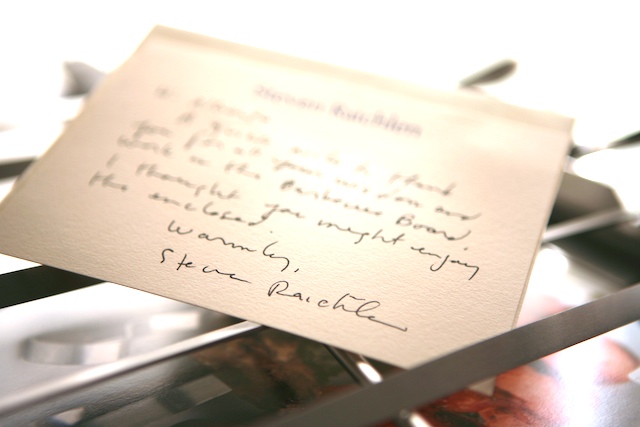 Steven Raichlen
A quick note to thank
you for all your wisdom and
work on the Barbecue Board.
I thought you might enjoy
the enclosed.
Warmly,
Steve Raichlen